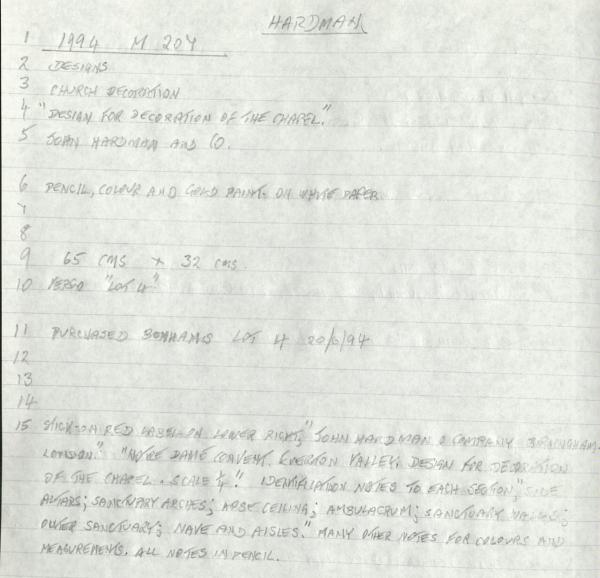 HARDMAN
1 1994 M 204
2 DESIGNS
3 CHURCH DECORATION
4 "DESIGN FOR DECORATION OF THE CHAPEL."
5 JOHN HARDMAN AND CO.
6 PENCIL, COLOUR AND GOLD PAINT ON WHITE PAPER
7
8
9 65 CMS x 32 CMS.
10 VERSO "LOT 4"
11 PURCHASED BONHAMS LOT 4 20/6/94
12
13
14
15 STICK-ON RED LABEL ON LOWER RIGHT, "JOHN HARDMAN & COMPANY BIRMINGHAM.
LONDON." "NOTRE DAME CONVENT. EVERTON VALLEY. DESIGN FOR DECORATION
OF THE CHAPEL. SCALE ¼". IDENTIFIATION NOTES TO EACH SECTION, "SIDE
ALTARS; SANCTUARY ARCHES; APSE CEILING; AMBULACRUM; SANCTUARY WALLS;
OUTER SANCTUARY; NAVE AND AISLES." MANY OTHER NOTES FOR COLOURS AND
MEASUREMENTS. ALL NOTES IN PENCIL.